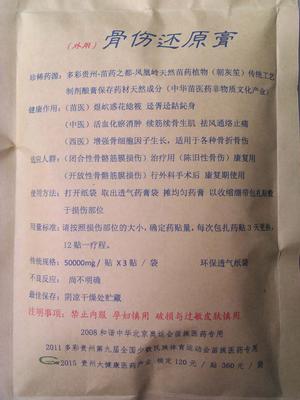 (外用) 骨伤还原膏
珍稀药源：多彩贵州-苗药之都-凤凰岭天然苗药植物（朝灰笙）传统工艺
制剂酿膏保存药材天然成分（中华苗医药非物质文化产业）
健康作用：（苗医）
（中医）活血化瘀消肿 续筋续骨生肌 祛风通络止痛
（西医）增强骨细胞因子生长，适用于各种骨折骨伤
适应人群：（闭合性骨骼筋膜损伤）治疗用（陈旧性骨伤）康复用
（开放性骨骼筋膜损伤）行外科手术后 康复期使用
使用方法：打开纸袋 取出透气药膏袋 摊均匀药膏 以收缩绷带包扎贴敷
于损伤部位
用量标准：请按照损伤部位的大小，确定药贴量，每次包扎药贴3天更换，
12贴一疗程。
传统规格：50000mg／贴 X3贴／袋 环保透气纸袋
不良反应：尚不明确
最佳保存：阴凉干燥处贮藏
注明事项：禁止内服 孕妇慎用 破损与过敏皮肤慎用
2008和谐中华北京奥运会苗族医药专用
2011多彩贵州第九届全国少数民族体育运动会苗族医药专用
2015贵州大健康医药产业 核定120元／贴 360元／袋